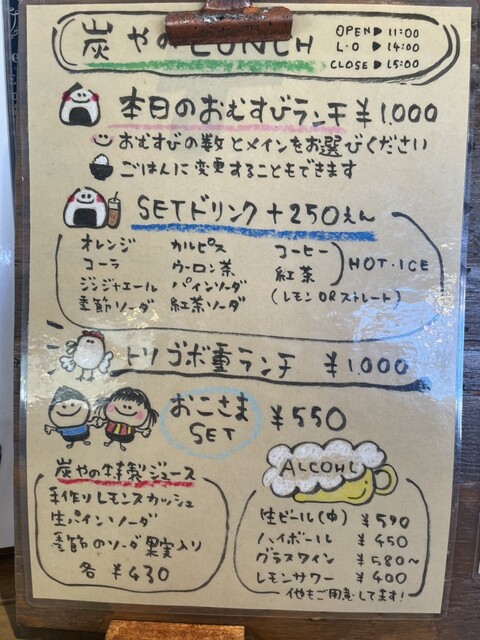 炭やのLUNCH
OPEN▶11:00
L.O▶14:00
CLOSE▶15:00
本日のおむすびランチ ¥1,000
おむすびの数とメインをお選びください
ごはんに変更することもできます
SETドリンク+250えん
オレンジ カルピス コーヒー
コーラ ウーロン茶 紅茶 HOT・ICE
ジンジャエール パインソーダ (レモンORストレート)
季節ソーダ 紅茶ソーダ
トリゴボ重ランチ ¥1,000
おこさま ¥550
SET
炭やの特製ジュース
手作りレモンスカッシュ
生パインソーダ
季節のソーダ果実入り
各 ¥430
ALCOHL
生ビール(中) ¥590
ハイボール ¥450
グラスワイン ¥580〜
レモンサワー ¥400
他もご用意してます!